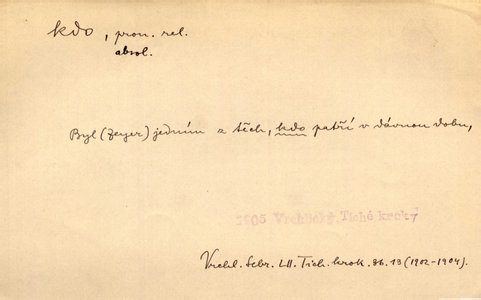 kdo, pron. rel.
absol.
Byl (Zeyer) jedním z těch, kdo patří v dávnou dobu,
1905 Vrchlický, Tiché kroky
Vrchl. Sebr. LII. Tich. krok. 36. 13 (1902-1904).